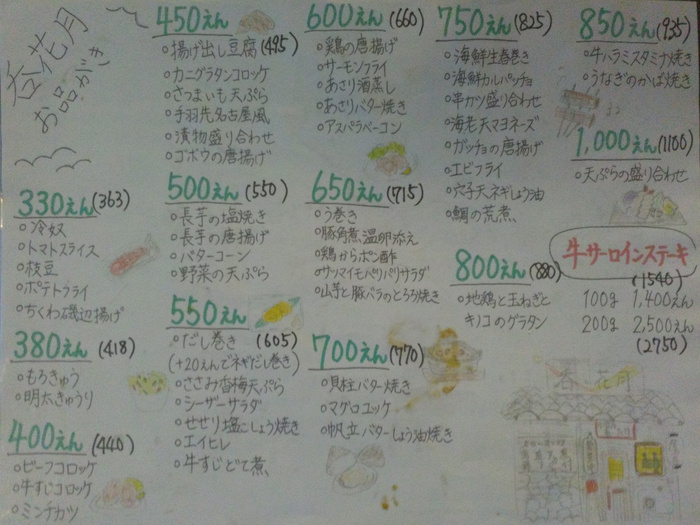 呑花月
お品がき
330えん(363)
○冷奴
○トマトスライス
○枝豆
○ポテトフライ
○ちくわ磯辺揚げ
380えん(418)
○もろきゅう
○明太きゅうり
400えん(440)
○ビーフコロッケ
○牛すじコロッケ
○ミンチカツ
450えん
○揚げ出し豆腐(495)
○カニグラタンコロッケ
○さつまいも天ぷら
○手羽先名古屋風
○漬物盛り合わせ
○ゴボウの唐揚げ
500えん(550)
○長芋の塩焼き
○長芋の唐揚げ
○バターコーン
○野菜の天ぷら
550えん
○だし巻き(605)
(+20えんでネギだし巻き)
○ささみ香梅天ぷら
○シーザーサラダ
○せせり塩こしょう焼き
○エイヒレ
○牛すじどて煮
600えん(660)
○鶏の唐揚げ
○サーモンフライ
○あさり酒蒸し
○あさりバター焼き
○アスパラベーコン
650えん(715)
○う巻き
○豚角煮温卵添え
○鶏からポン酢
○サツマイモパリパリサラダ
○山芋と豚バラのとろろ焼き
700えん(770)
○貝柱バター焼き
○マグロユッケ
○帆立バターしょう油焼き
750えん(825)
○海鮮生春巻き
○海鮮カルパッチョ
○串カツ盛り合わせ
○海老天マヨネーズ
○ガッチョの唐揚げ
○エビフライ
○穴子天ネギしょう油
○鯛の荒煮
800えん(880)
○地鶏と玉ねぎと
キノコのグラタン
850えん(935)
○牛ハラミスタミナ焼き
○うなぎのかば焼き
1,000えん(1100)
○天ぷらの盛り合わせ
牛サーロインステーキ
(1540)
100g 1,400えん
200g 2,500えん
(2750)
呑花月